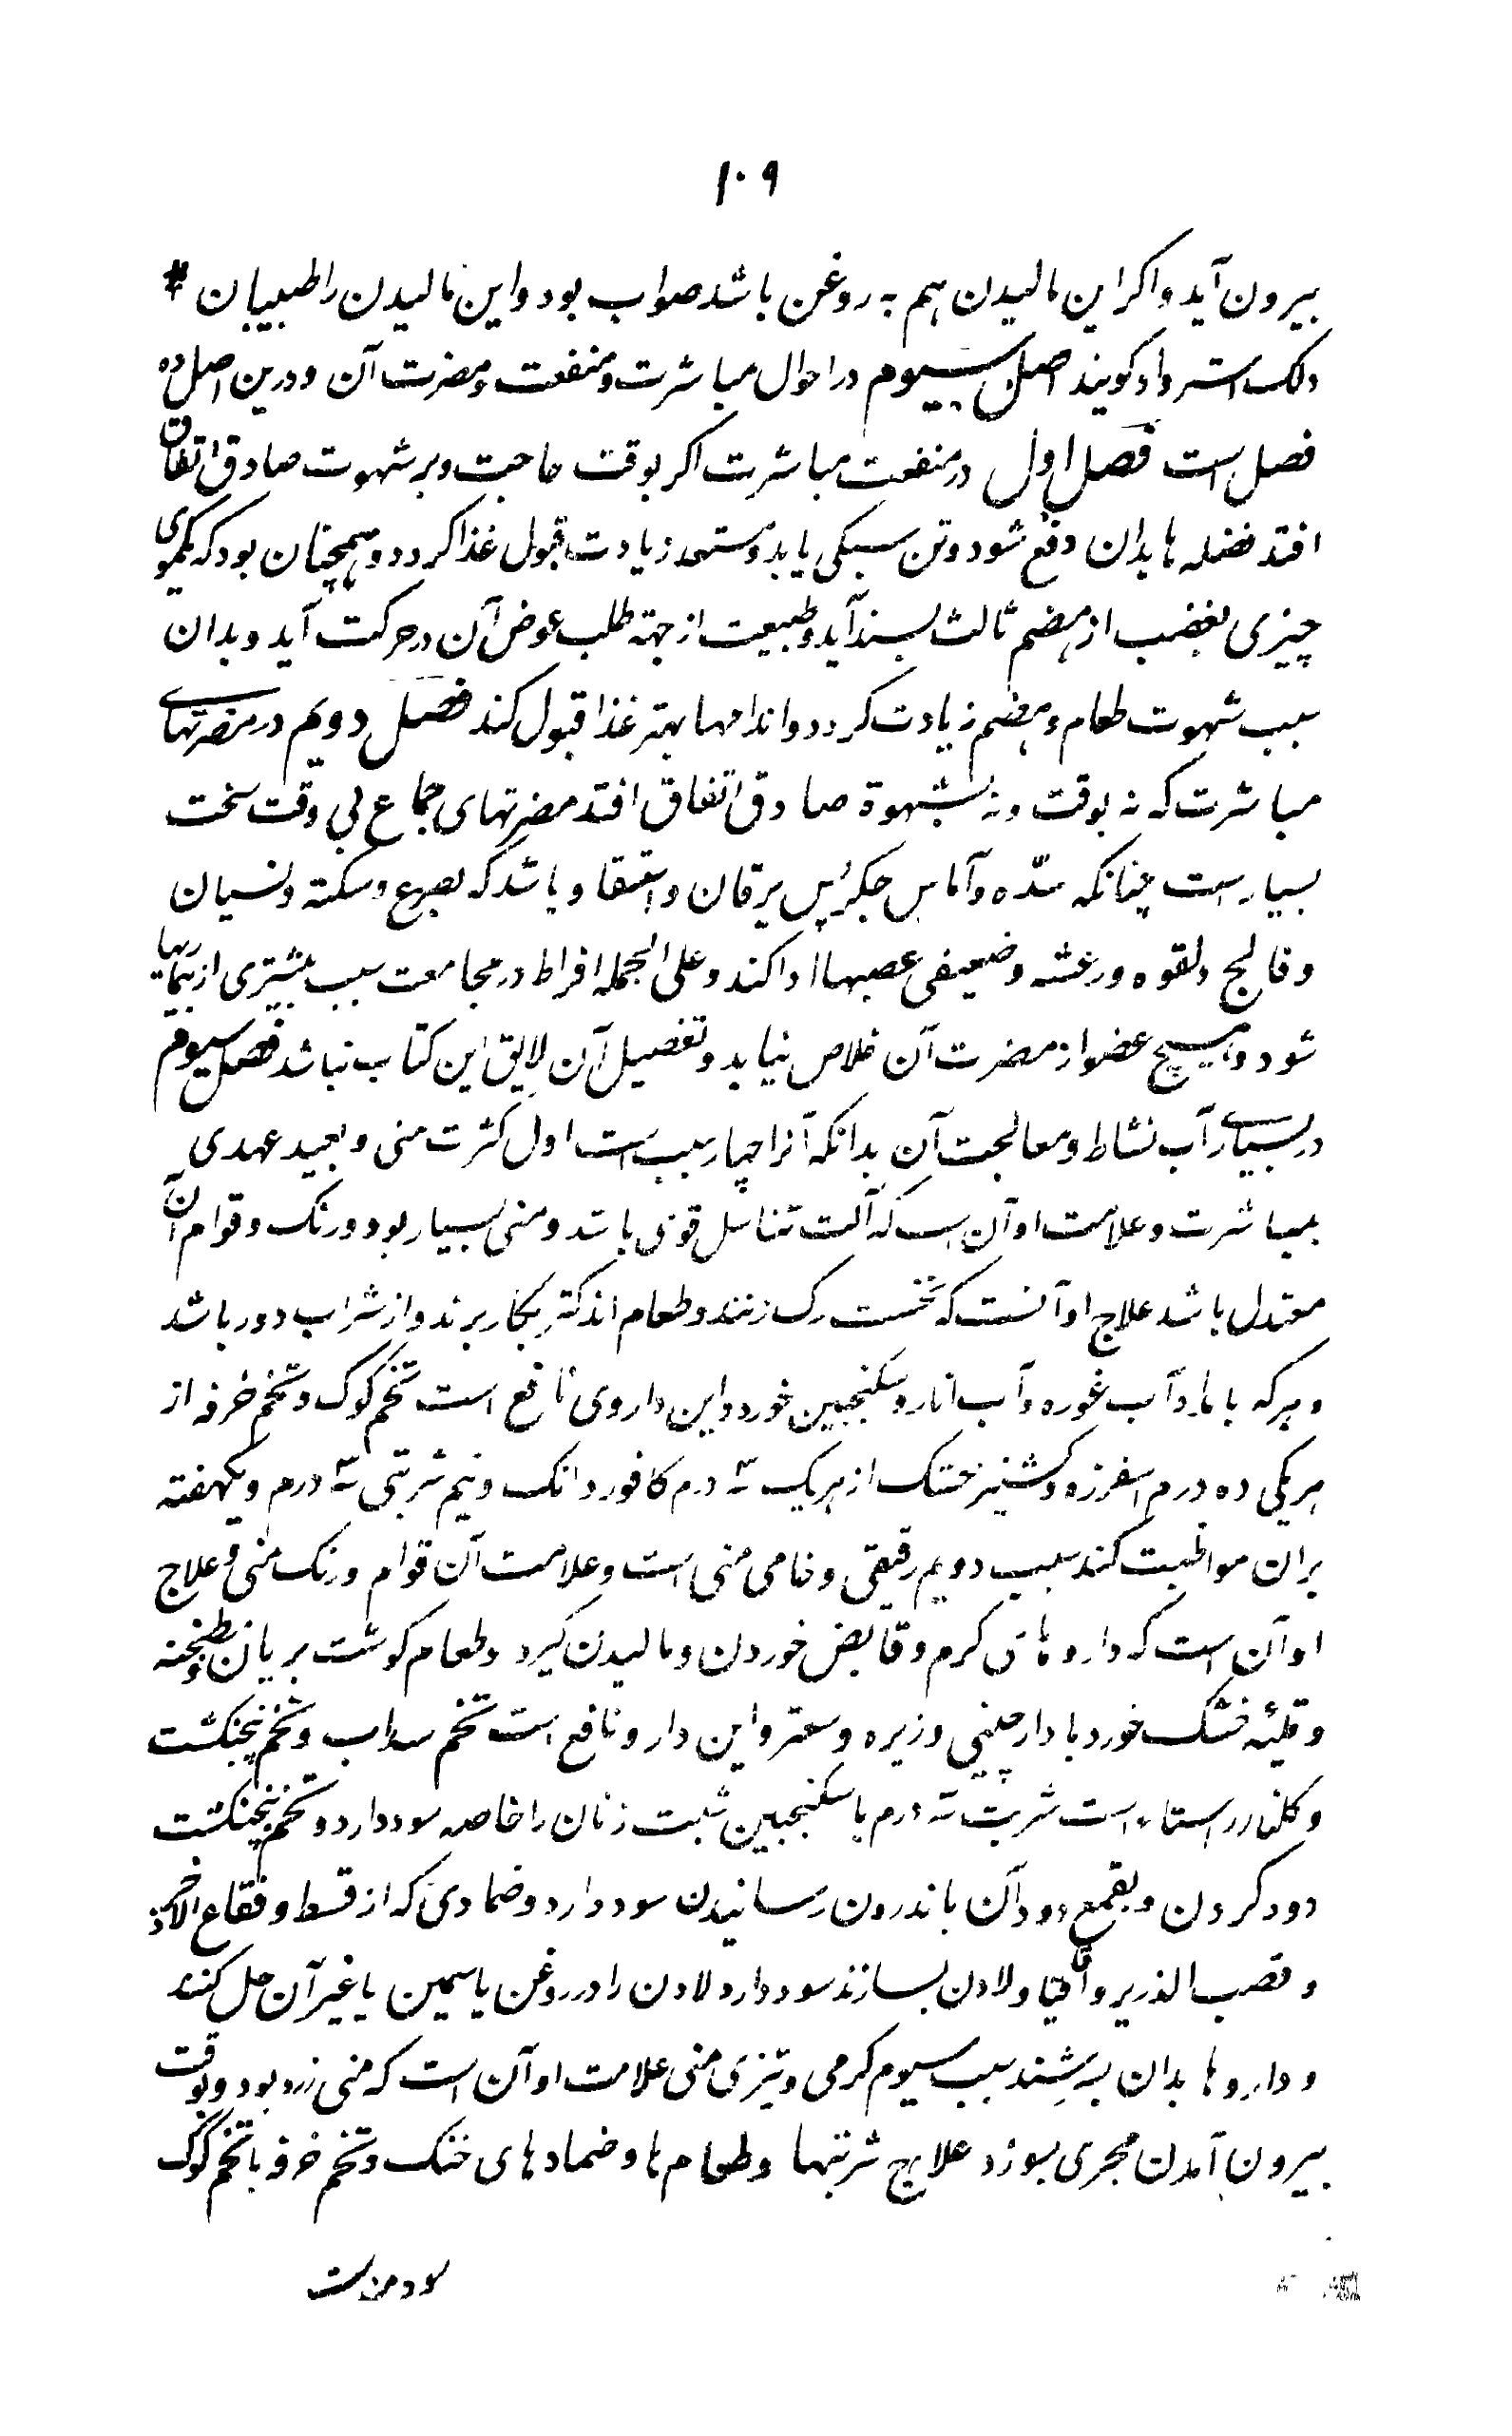 ۱۰۹
بیرون آید و اکر این مالیدن هم به روغن باشد صواب بود و این مالیدن را طبیبان
دلک استرداد کویند اصل سیوم در احوال مباشرت و منفعت و مضرت آن و درین اصل ده
فصل است فصل اول در منفعت مباشرت اکر بوقت حاجت و بر شهوت صادق اتفاق
افتد فضله ها بدان دفع شود و تن سبکی یابد و مستعد زیادت قبول غذا کردد و همچنان بود که کموی
چیزی بغضب از هضم ثالث بسند آید و طبیعت از جهته طلب عوض آن در حرکت آید و بدان
سبب شهوت طعام و هضم زیادت کردد و اندامها بهتر غذا قبول کند فصل دویم در مضرتهای
مباشرت که نه بوقت و نه بشهوة صادق اتفاق افتد مضرتهای جماع بی وقت سخت
بسیار است چنانکه سدّه و آماس جکر پس یرقان و استسقا و باشد که بصرع و سکته و نسیان
و فالج و لقوه و رعشه و ضعیفی عصبها ادا کند و علی الجمله افراط در مجامعت سبب بیشتری از بیماریها
شود و هیچ عضو از مضرت آن خلاص نیابد و تفصیل آن لایق این کتاب نباشد فصل سیوم
در بسیاری آب نشاط و معالجت آن بدانکه آنرا چهار سبب است اول کثرت منی و بعید عهدی
بمباشرت و علامت او آن است که آلت تناسل قوی باشد و منی بسیار بود و رنک و قوام آن
معتدل باشد علاج او آنست که نخست رک زنند و طعام اندکتر بکار برند و از شراب دور باشد
و سرکه با و آب غوره و آب انار و سکنجبین خورد و این داروی نافع است تخم کوک و تخم خرفه از
هر یکی ده درم اسفرزه و کشنیز خشک از هر یک سه درم کافور دانک و نیم شربتی سه درم و یکهفته
بران مواظبت کند سبب دویم رقیقی و خامی منی است و علامت آن قوام و رنک منی و علاج
او آن است که داروهای کرم و قابض خوردن و مالیدن کیرد و طعام کوشت بریان و مطنجنه
و قلیهٔ خشک خورد با دارچینی و زیره و سعتر و این دارو نافع است تخم سداب و تخم پنجنکشت
و کلنار راستا است شربت سه درم با سکنجبین شبت زنان را خاصه سود دارد و تخم پنجنکشت
دود کردن و بقمع دود آن باندرون رسانیدن سود دارد و ضمادی که از قسط و فقاع الاذخر
و قصب الذریر و اقاقیا و لادن بسازند سود دارد لادن را در روغن یاسمین یا غیر آن حل کنند
و داروها بدان بسرشند سبب سیوم کرمی و تیزی منی علامت او آن است که منی زرد بود و بوقت
بیرون آمدن مجری بسوزد علاج شربتها و طعام ها و ضمادهای خنک و تخم خرفه با تخم کوک
سودمنست